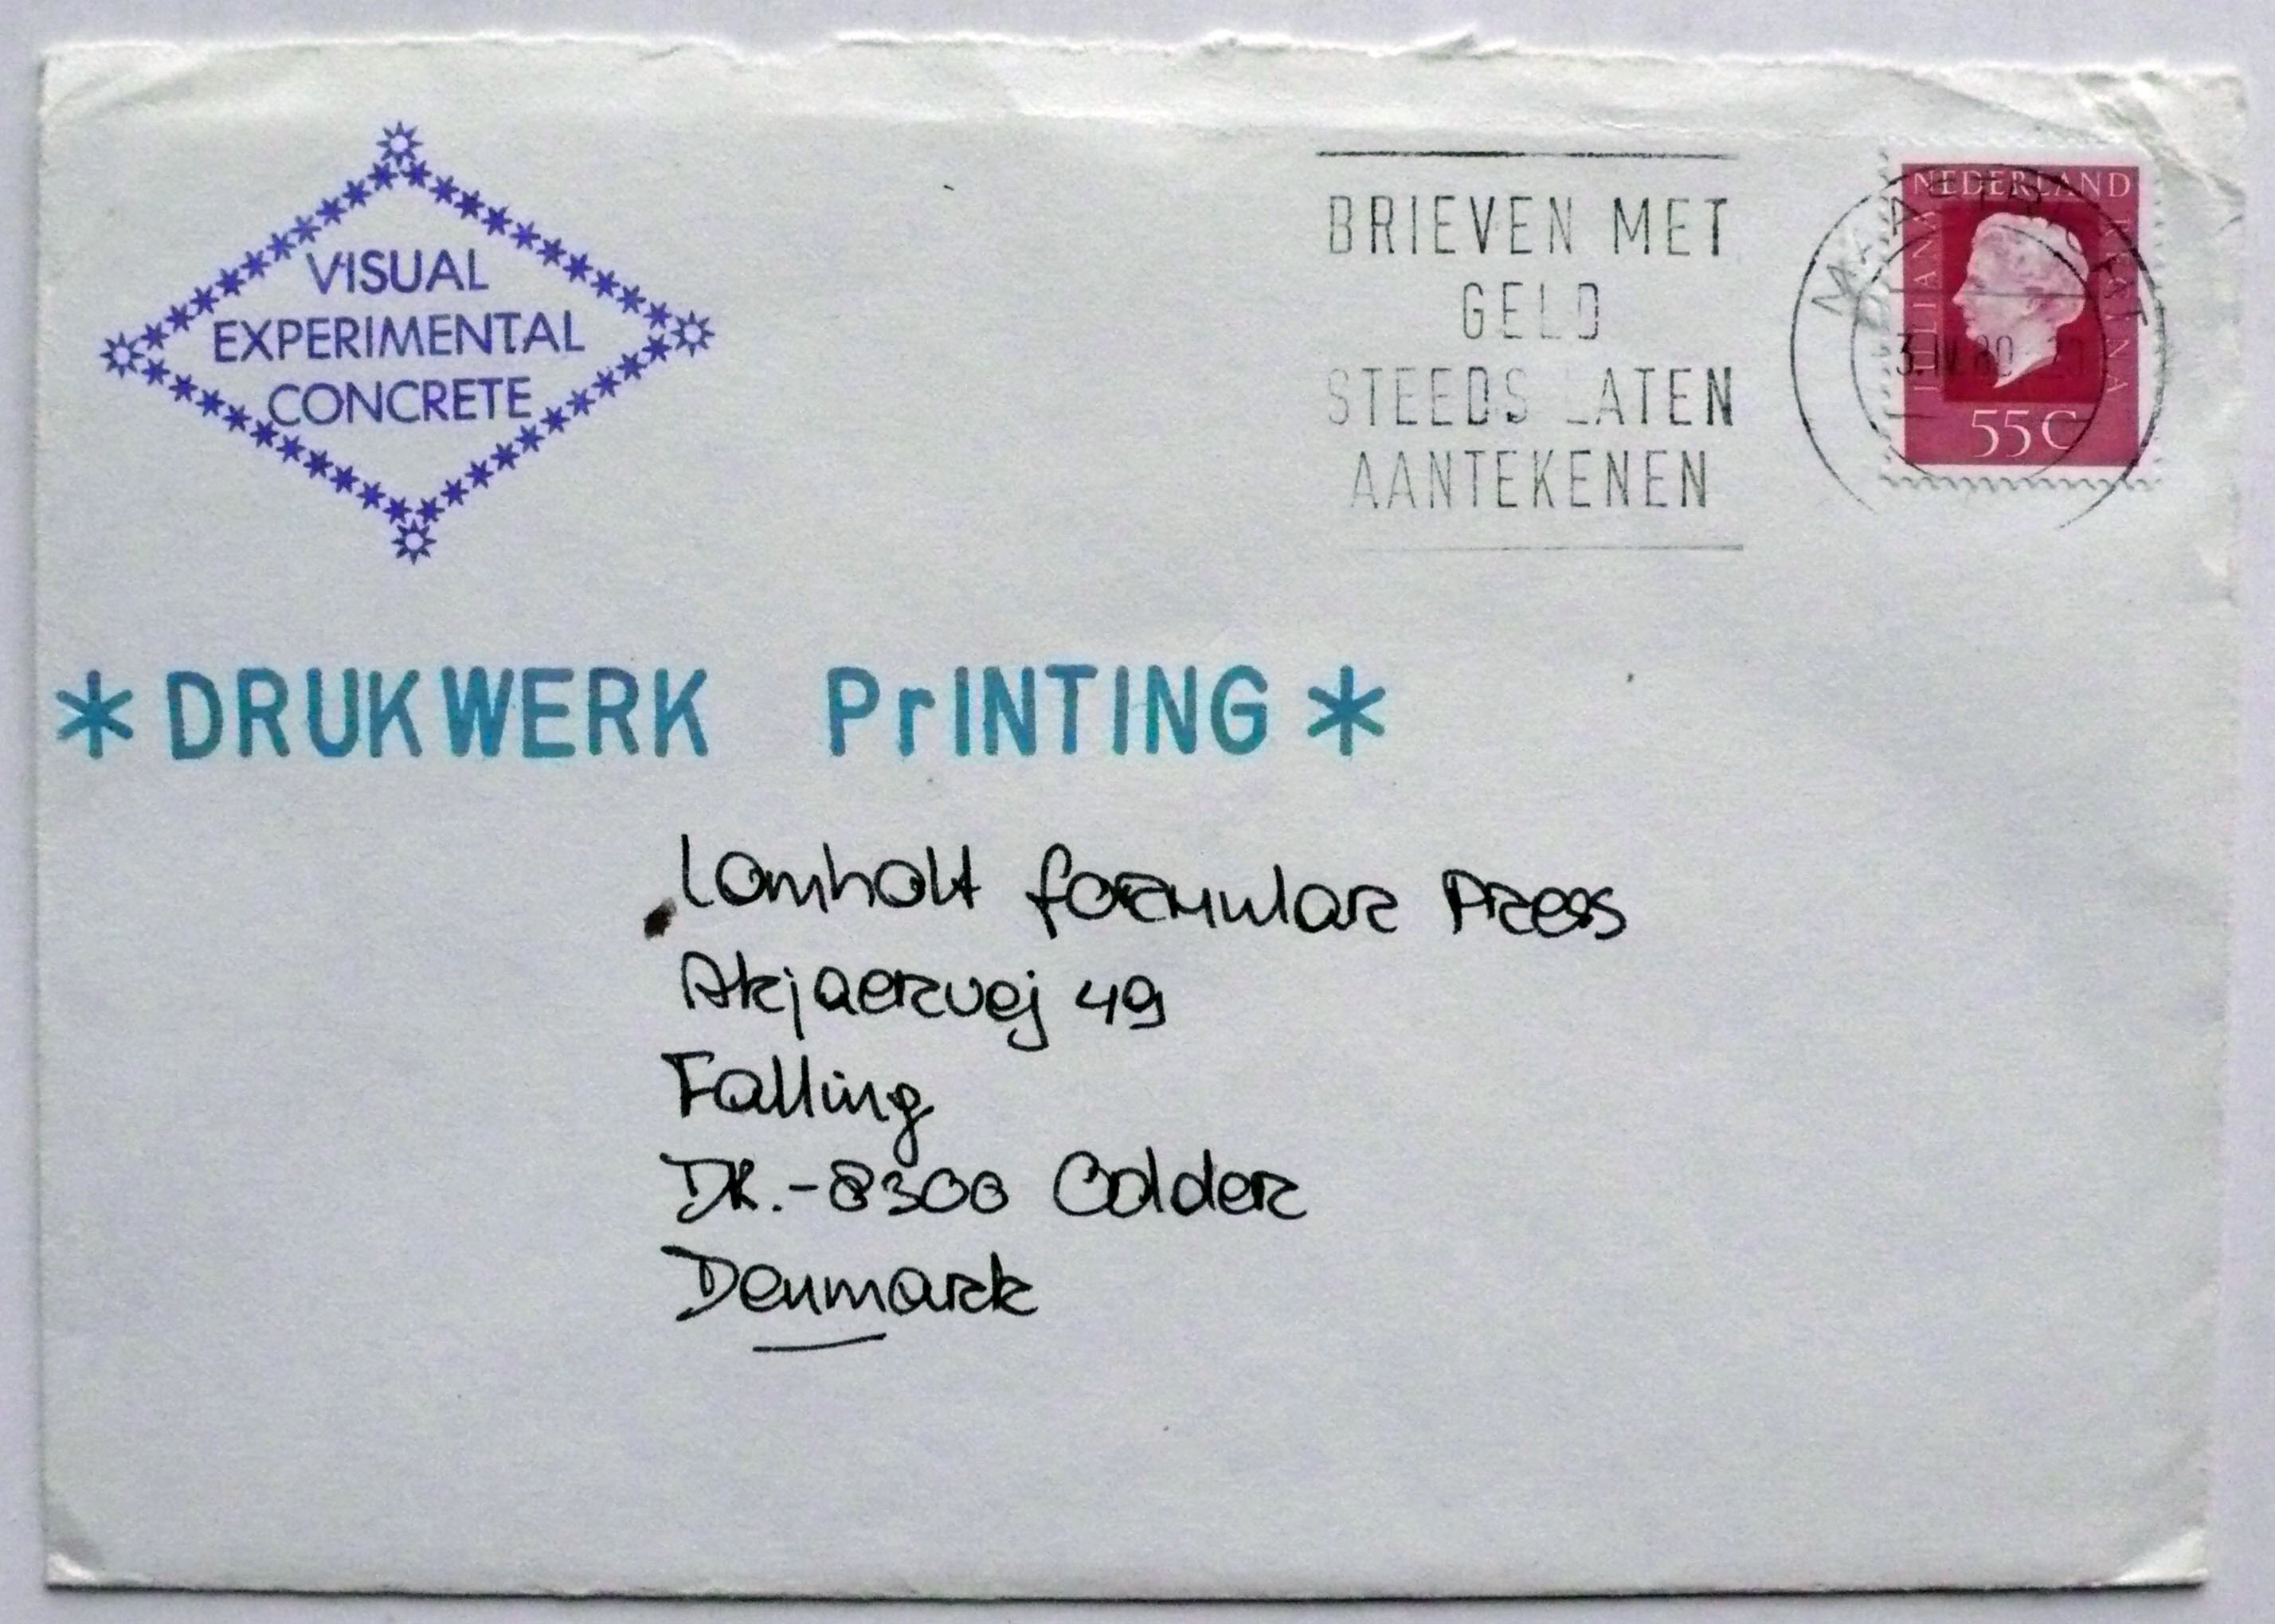 VISUAL
EXPERIMENTAL
CONCRETE
BRIEVEN MET
GELD
STEEDS LATEN
AANTEKENEN
NEDERLAND
JULIANA
REGINA
55 C
MAASTRICHT
3.IV.80
*DRUKWERK PrINTING*
Lomholt formular Press
Akjaervej 49
Falling
DK.-8300 Odder
Denmark